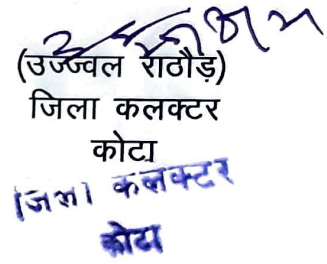 (उज्ज्वल राठौड़)
जिला कलक्टर
कोटा
जिला कलक्टर
कोटा